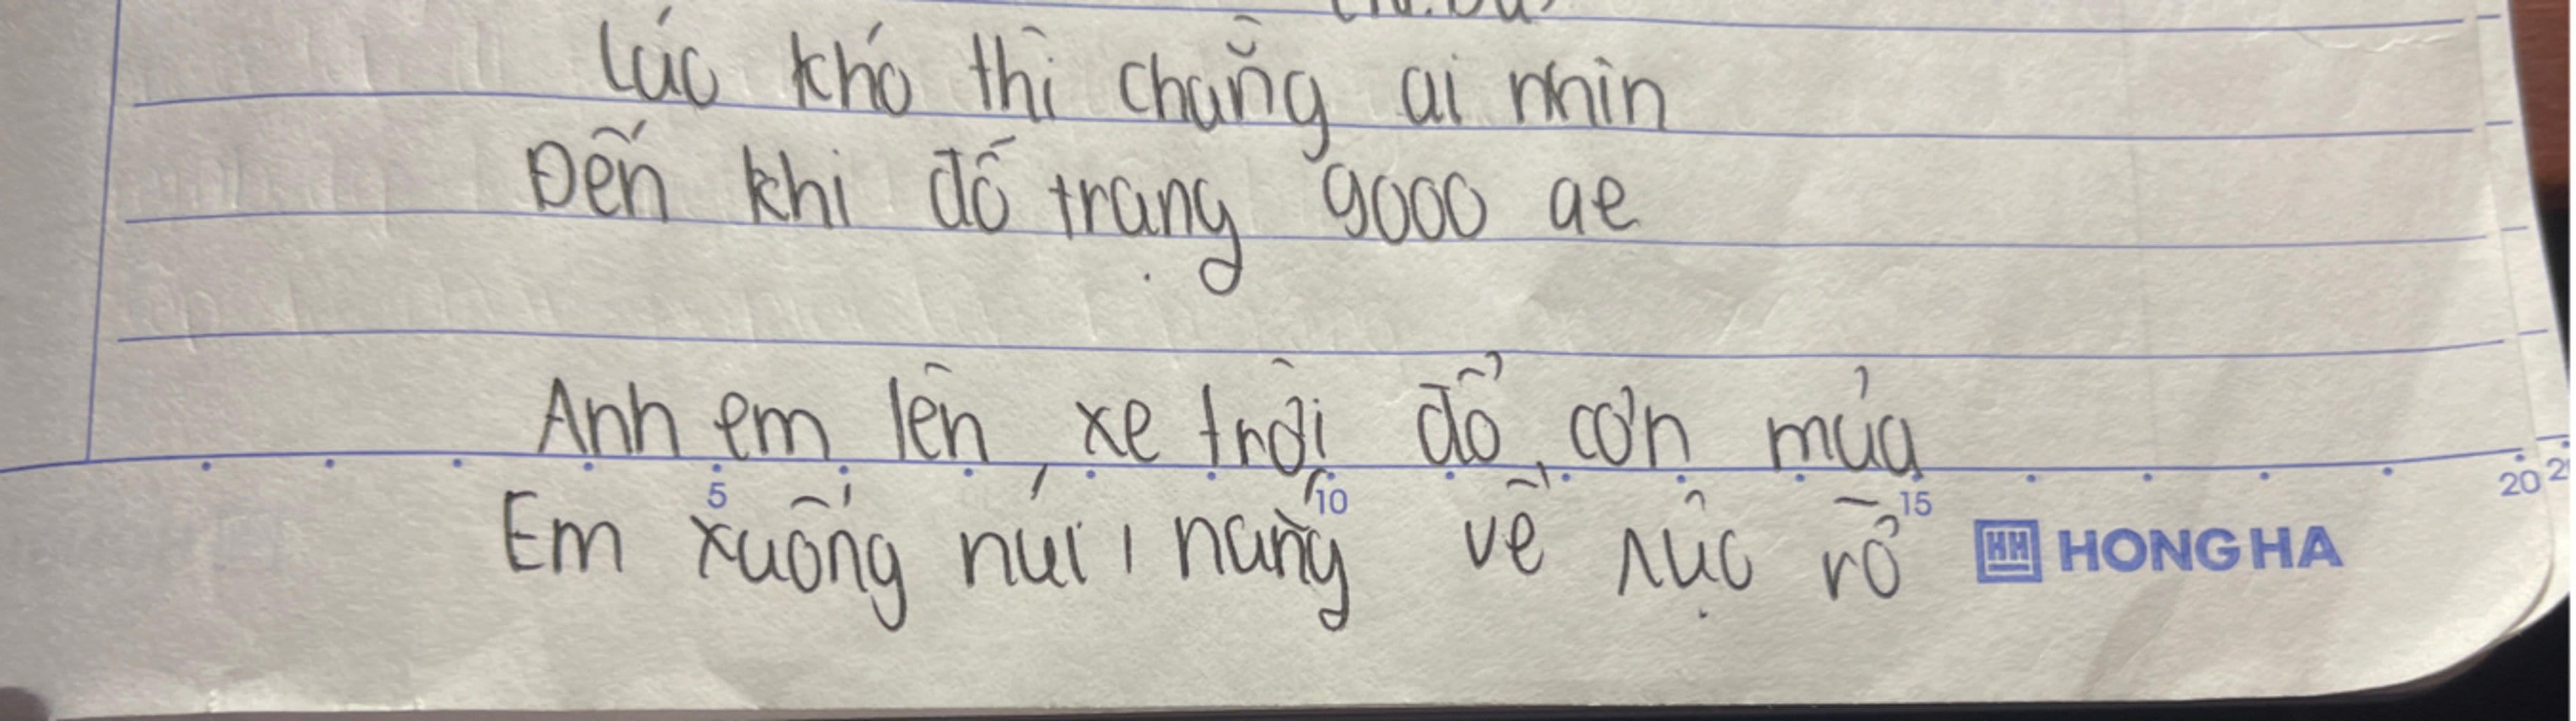 Lúc khó thì chẳng ai nhìn
Đến khi đố trạng 9000 ae
Anh em lên xe trời đổ cơn mưa
Em xuống núi, nắng về rực rỡ
5 10 15 20
HH HONG HA